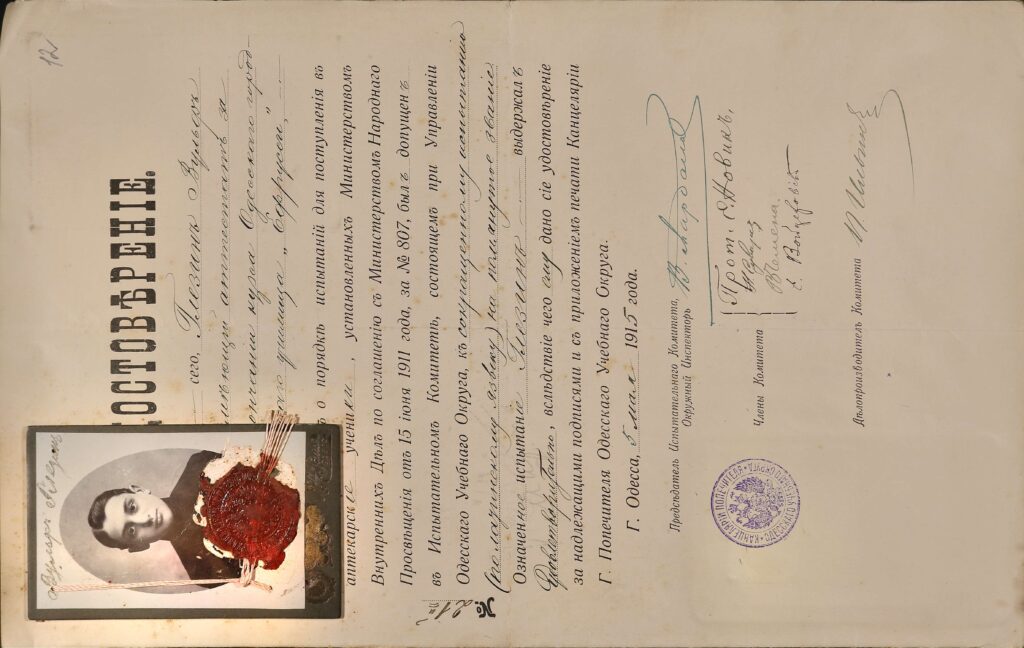 12
ОСТОВѢРЕНІЕ.
сего, Глезинъ Вульфъ
имѣющій аттестатъ за
курса Одесскаго город
училища „Ефруси",
о порядкѣ испытаній для поступленія въ
аптекарскіе ученики, установленныхъ Министерствомъ
Внутреннихъ Дѣлъ по соглашенію съ Министерствомъ Народнаго
Просвѣщенія отъ 15 іюня 1911 года, за № 807, былъ допущенъ
въ Испытательномъ Комитетѣ, состоящемъ при Управленіи
Одесскаго Учебнаго Округа, къ сокращенному испытанію
(по латинскому языку) на помянутое званіе
Означенное испытаніе Глезинъ выдержалъ
Удовлетворительно, вслѣдствіе чего ему дано сіе удостовѣреніе
за надлежащими подписями и съ приложеніемъ печати Канцеляріи
Г. Попечителя Одесскаго Учебнаго Округа.
Г. Одесса, 5 мая 1915 года.
№ 21
Предсѣдатель Испытательнаго Комитета,
Окружный Инспекторъ
Члены Комитета
Прот. С. Новикъ,
Дѣлопроизводитель Комитета
КАНЦЕЛЯРІЯ ПОПЕЧИТЕЛЯ ОДЕССКАГО ОКРУГА